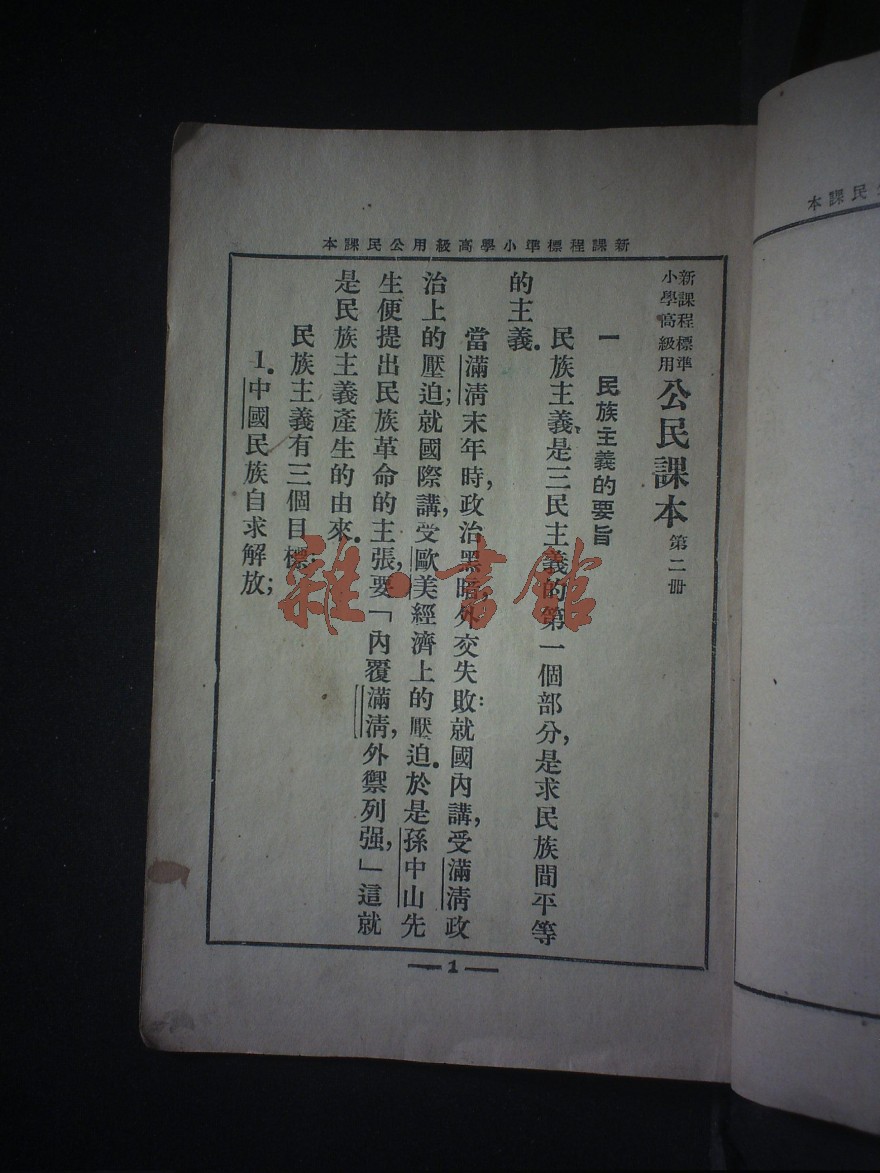 新課程標準小學高級用公民課本
新課程標準
小學高級用
公民課本 第二冊
一 民族主義的要旨
民族主義是三民主義的第一個部分，是求民族間平等
的主義。
當滿清末年時，政治黑暗，外交失敗：就國內講，受滿清政
治上的壓迫；就國際講，受歐美經濟上的壓迫。於是孫中山先
生便提出民族革命的主張，要「內覆滿清，外禦列强，」這就
是民族主義產生的由來。
民族主義有三個目標：
1. 中國民族自求解放；
1
民課本
雜·書館